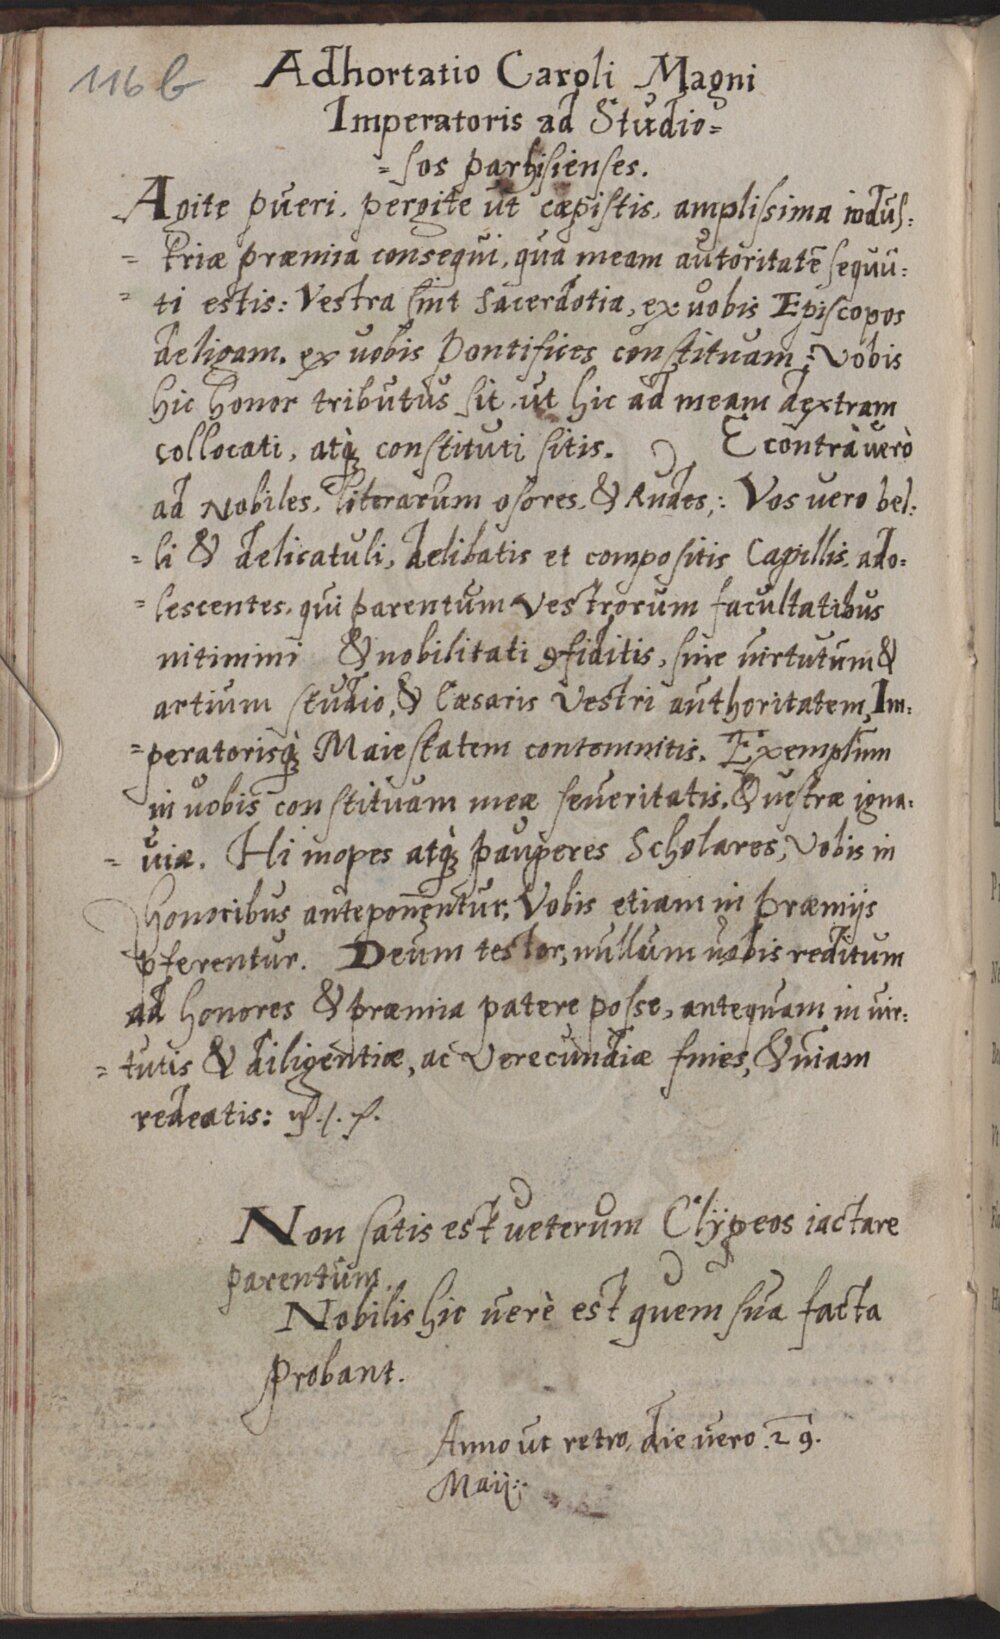 116 b
Adhortatio Caroli Magni
Imperatoris ad Studio=
=sos parhisienses.
Agite pueri, pergite ut cæpistis, amplissima indus:
=triæ præmia consequi, qua meam autoritatē sequu:
=ti estis: Vestra sint Sacerdotia, ex uobis Episcopos
deligam. ex uobis Pontifices constituam: Vobis
hic honor tributus sit, ut hic ad meam dextram
collocati, atq́ꝫ constituti sitis. E contrà uerò
ad Nobiles, literarum osores, & Rudes,: Vos uero bel:
=li & delicatuli, delibatis et compositis Capillis, ado:
=lescentes, qui parentum Vestrorum facultatibus
nitimini & nobilitati ꝯfiditis, sine uirtutum &
artium studio, & Cæsaris Vestri authoritatem, Im:
=peratorisq́ꝫ Maiestatem contemnitis. Exemplum
in uobis constituam meæ seueritatis, & uestræ igna:
=uiæ. Hi inopes atq́ꝫ pauperes Scholares, Vobis in
honoribus anteponentur, Vobis etiam in præmijs
p̄ferentur. Deum testor, nullum uobis reditum
ad honores & præmia patere posse, antequam in uir:
=tutis & diligentiæ, ac Verecundiæ fines, & uiam
redeatis:
Non satis est ueterum Clÿpeos iactare
parentum.
Nobilis hic uerè est quem sua facta
probant.
Anno ut retro, die uero .29.
Maij: